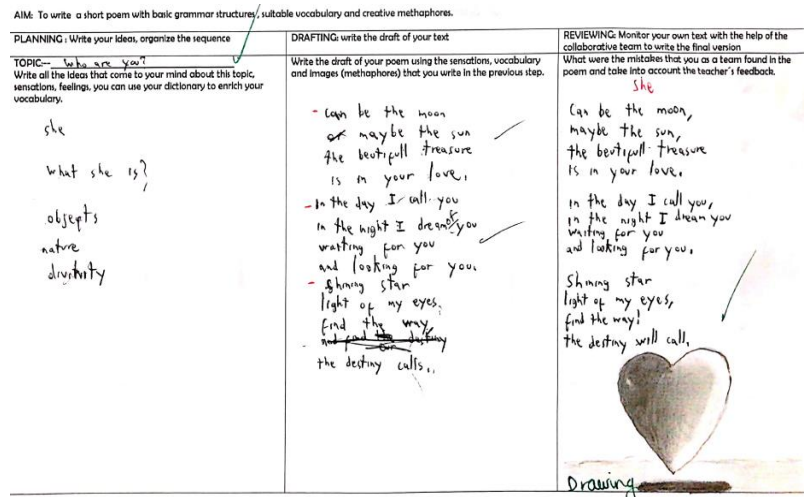 AIM: To write a short poem with basic grammar structures, suitable vocabulary and creative methaphores.
PLANNING : Write your ideas, organize the sequence
TOPIC:- Who are you?
Write all the ideas that come to your mind about this topic,
sensations, feelings, you can use your dictionary to enrich your
vocabulary.
she
what she is?
objepts
nature
divinity
DRAFTING: write the draft of your text
Write the draft of your poem using the sensations, vocabulary
and images (methaphores) that you write in the previous step.
- Can be the moon
or maybe the sun
the beutifull treasure
is in your love,
- In the day I call you
in the night I dream of you
waiting for you
and looking for you.
- Shining star
light of my eyes,
find the way,
the destiny calls..
REVIEWING: Monitor your own text with the help of the
collaborative team to write the final version
What were the mistakes that you as a team found in the
poem and take into account the teacher's feedback.
She
Can be the moon,
maybe the sun,
the beutifull treasure
is in your love.
in the day I call you,
in the night I dream you
waiting for you
and looking for you.
Shining star
light of my eyes,
find the way!
the destiny will call.
Drawing